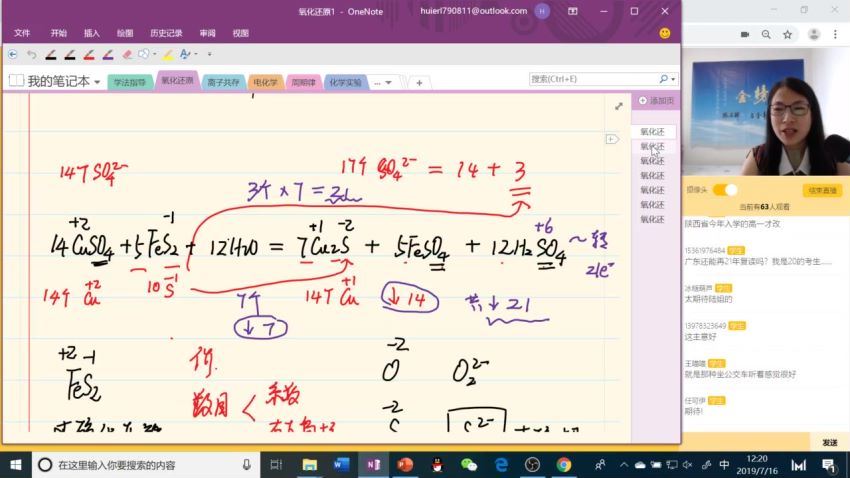 氧化还原1 - OneNote
huierl790811@outlook.com
H
文件 开始 插入 绘图 历史记录 审阅 视图
我的笔记本
学法指导 氧化还原 离子共存 电化学 周期律 化学实验 ...
搜索(Ctrl+E)
添加页
氧化还
氧化还
氧化还
氧化还
氧化还
氧化还
氧化还
14个SO₄²⁻
17个SO₄²⁻ = 14 + 3
3个 × 7 = 21
+2 -1 +1 -2 +6
14CuSO₄ + 5FeS₂ + 12H₂O = 7Cu₂S + 5FeSO₄ + 12H₂SO₄ ~ 转
21e⁻
14个 +2 Cu 10 -1 S 7个 14个 +1 Cu ↓14 共↓21
↓7
+2 -1
FeS₂
价
数目
系数
-2
O O₂²⁻
-2
S²⁻
摄像头
结束直播
当前有63人观看
陕西省今年入学的高一才改
15361976484 学生
广东还能再21年复读吗？我是20的考生......
冰糖葫芦 学生
太期待陆姐的
13978323649 学生
这主意好
王喵喵 学生
就是那种坐公交车听着感觉很好
任可伊 学生
期待!
发送
在这里输入你要搜索的内容
中
12:20
2019/7/16
1